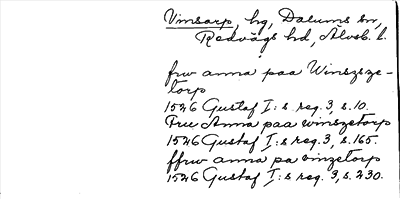 Vinsarp, hg, Dalums sn,
Redvägs hd, Älvsb. l.
frw anna paa Winszsze-
torp
1526 Gustaf I:s reg. 3, s. 10.
Fru Anna paa winszetorp
1526 Gustaf I:s reg. 3, s. 165.
ffrw anna pa vinzetorp
1526 Gustaf I:s reg. 3, s. 230.